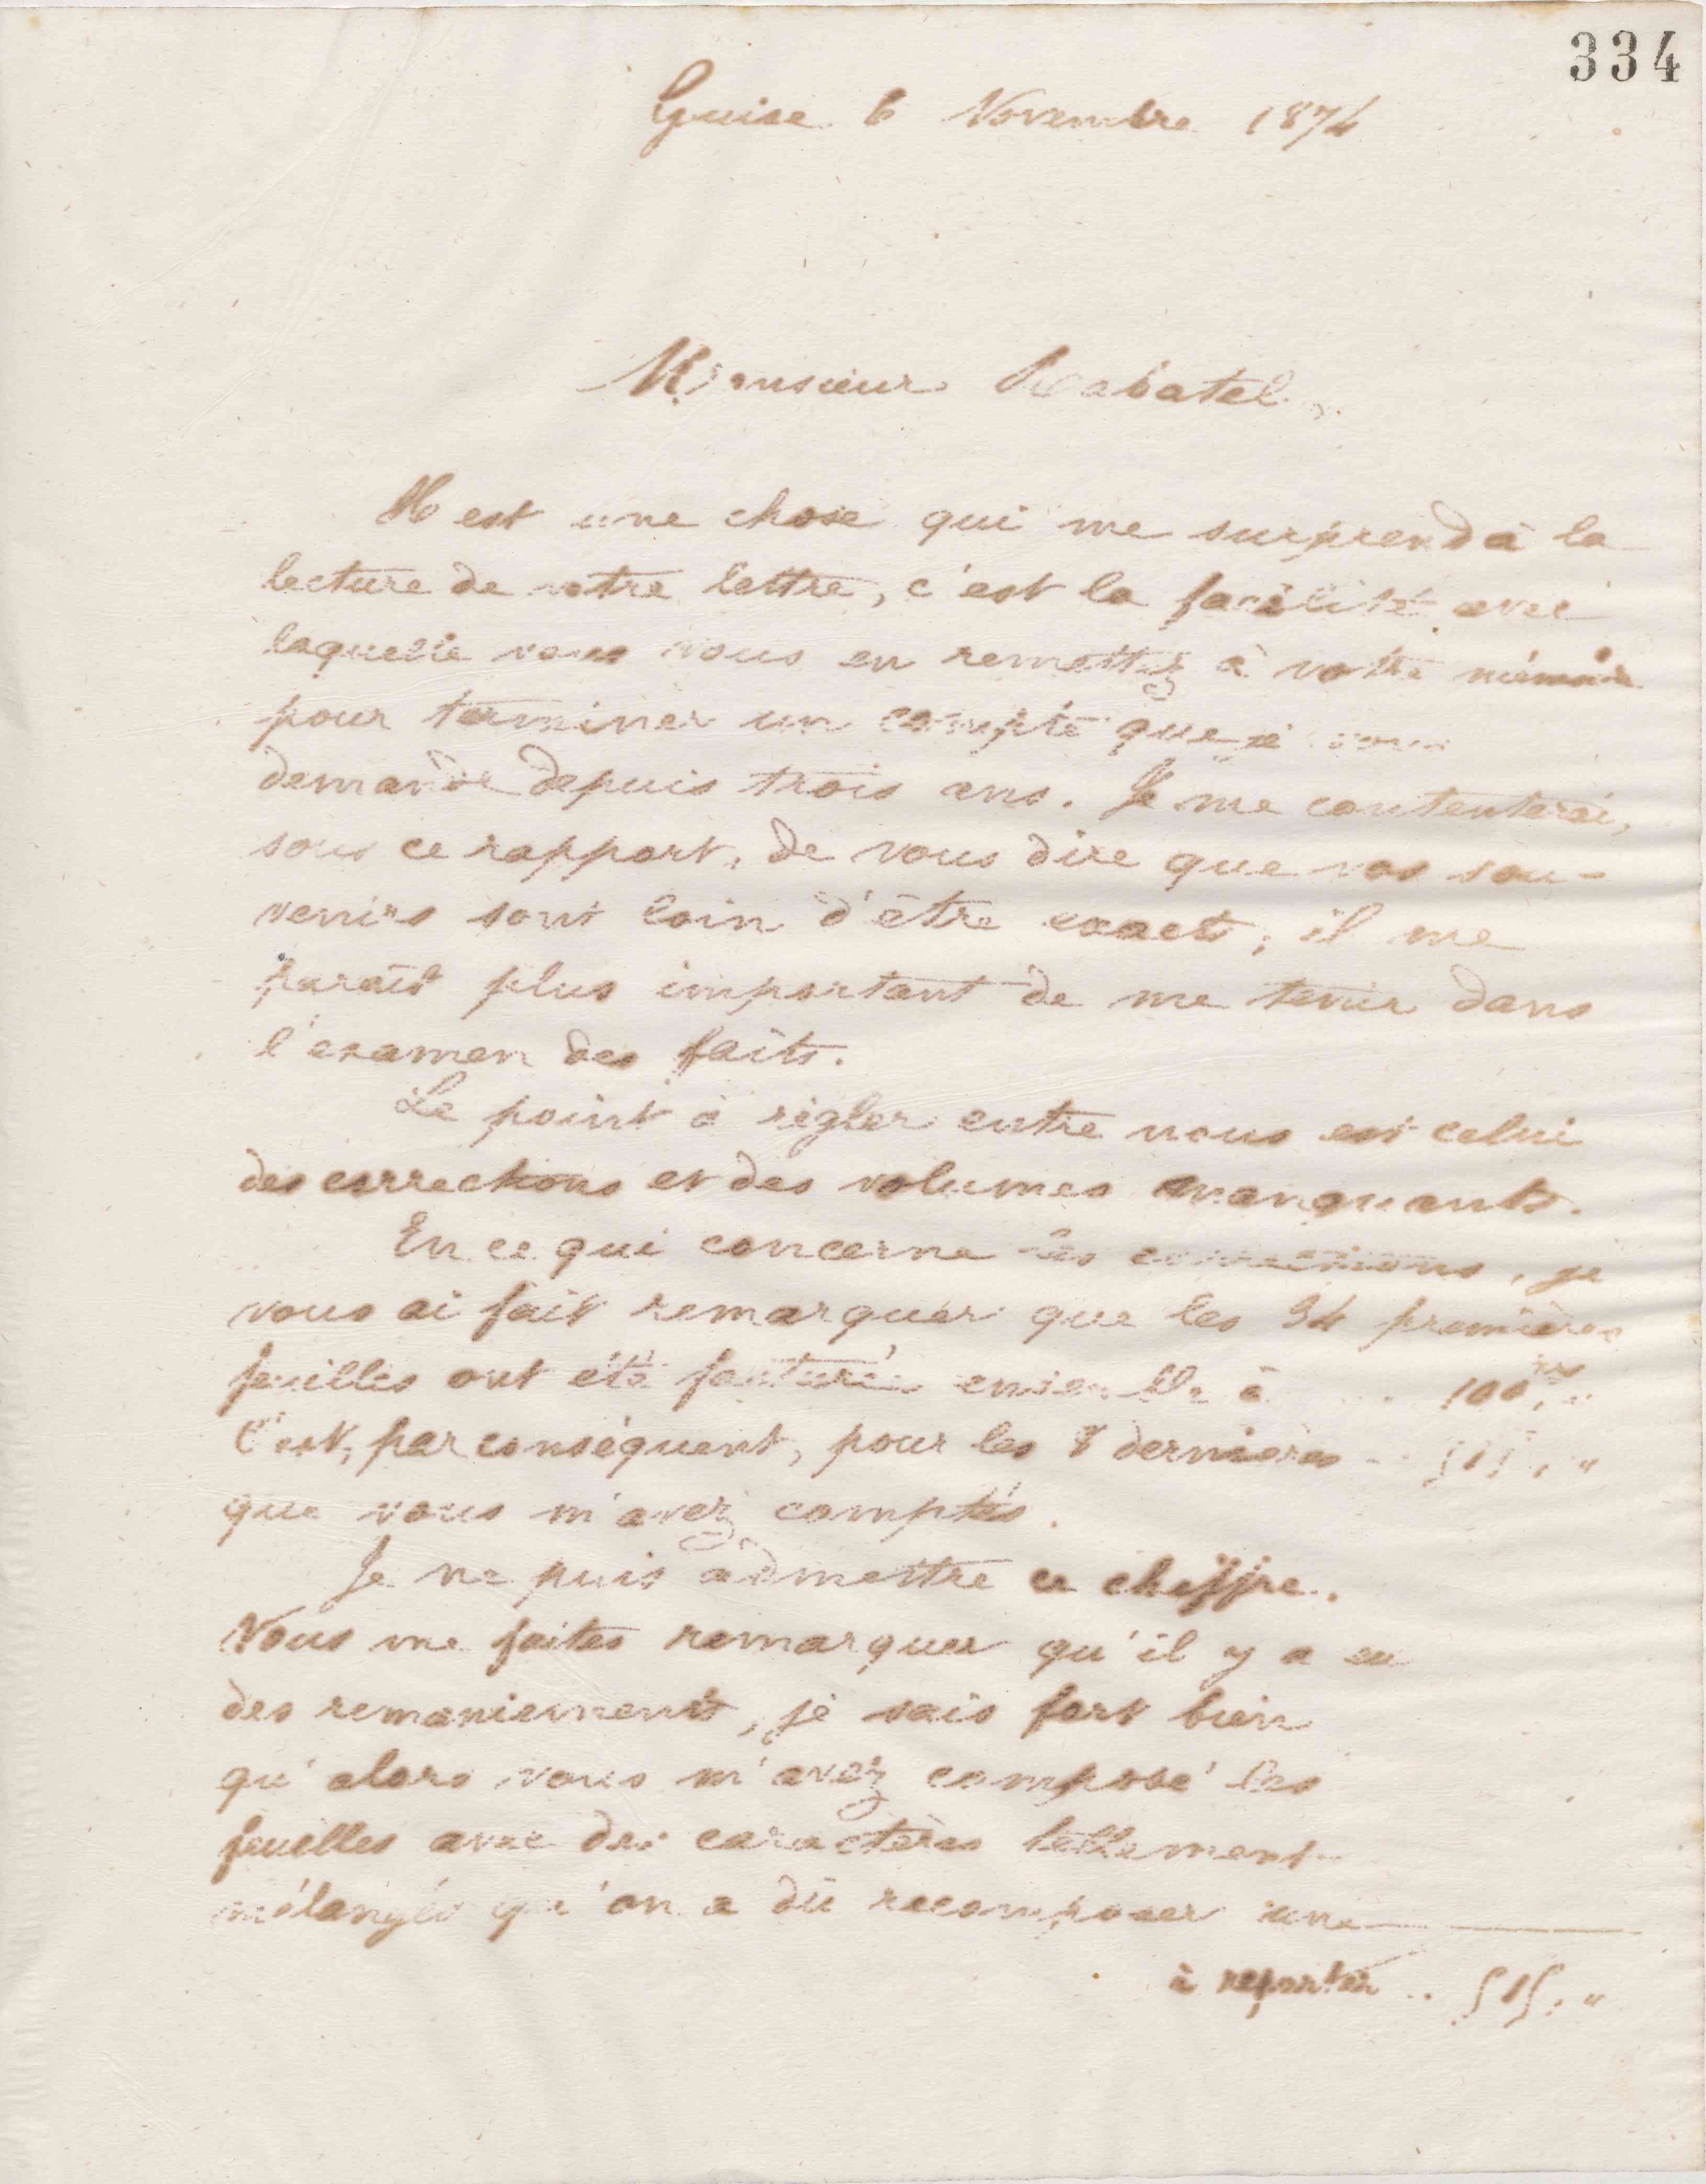 334
Guise 6 Novembre 1874
Monsieur Rabatel,
Il est une chose qui me surprend à la
lecture de votre lettre, c'est la facilité avec
laquelle vous vous en remettez à votre mémoire
pour terminer un compte que je vous
demande depuis trois ans. Je me contenterai,
sous ce rapport, de vous dire que vos sou-
venirs sont loin d'être exacts, il me
paraît plus important de me tenir dans
l'examen des faits.
Le point à régler entre nous est celui
des corrections et des volumes manquants.
En ce qui concerne les corrections, je
vous ai fait remarquer que les 34 premières
feuilles ont été facturées ensemble à .. 100,"
C'est, par conséquent, pour les 8 dernières - 515, "
que vous m'avez comptés.
Je ne puis admettre ce chiffre.
Vous me faites remarquer qu'il y a eu
des remaniements, je sais fort bien
qu'alors vous m'avez composé les
feuilles avec des caractères tellement
mélangés qu'on a dû recomposer une
à reporter .. 515, "